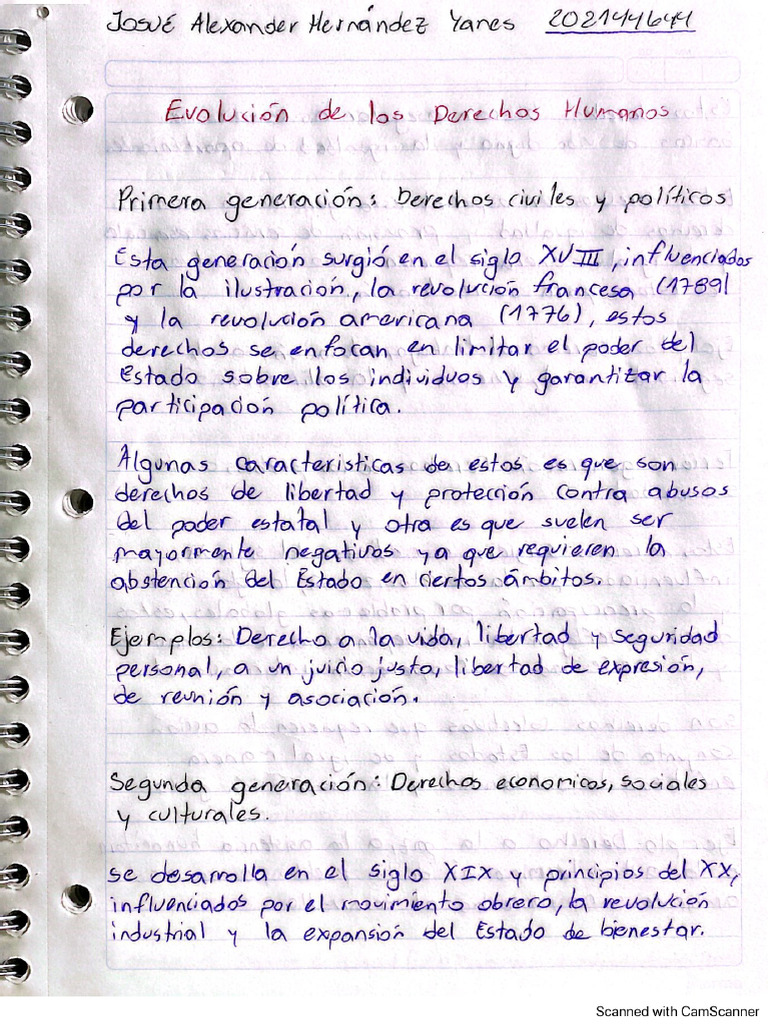 Josué Alexander Hernández Yanes 202144644
Evolución de los Derechos Humanos
Primera generación: Derechos civiles y políticos
Esta generación surgió en el siglo XVIII, influenciados
por la ilustración, la revolución francesa (1789)
y la revolución americana (1776), estos
derechos se enfocan en limitar el poder del
Estado sobre los individuos y garantizar la
participación política.
Algunas caracteristicas de estos es que son
derechos de libertad y protección contra abusos
del poder estatal y otra es que suelen ser
mayormente negativos ya que requieren la
abstención del Estado en ciertos ámbitos.
Ejemplos: Derecho a la vida, libertad y seguridad
personal, a un juicio justo, libertad de expresión,
de reunión y asociación.
Segunda generación: Derechos economicos, sociales
y culturales.
se desarrolla en el siglo XIX y principios del XX,
influenciados por el movimiento obrero, la revolución
industrial y la expansión del Estado de bienestar.
Scanned with CamScanner